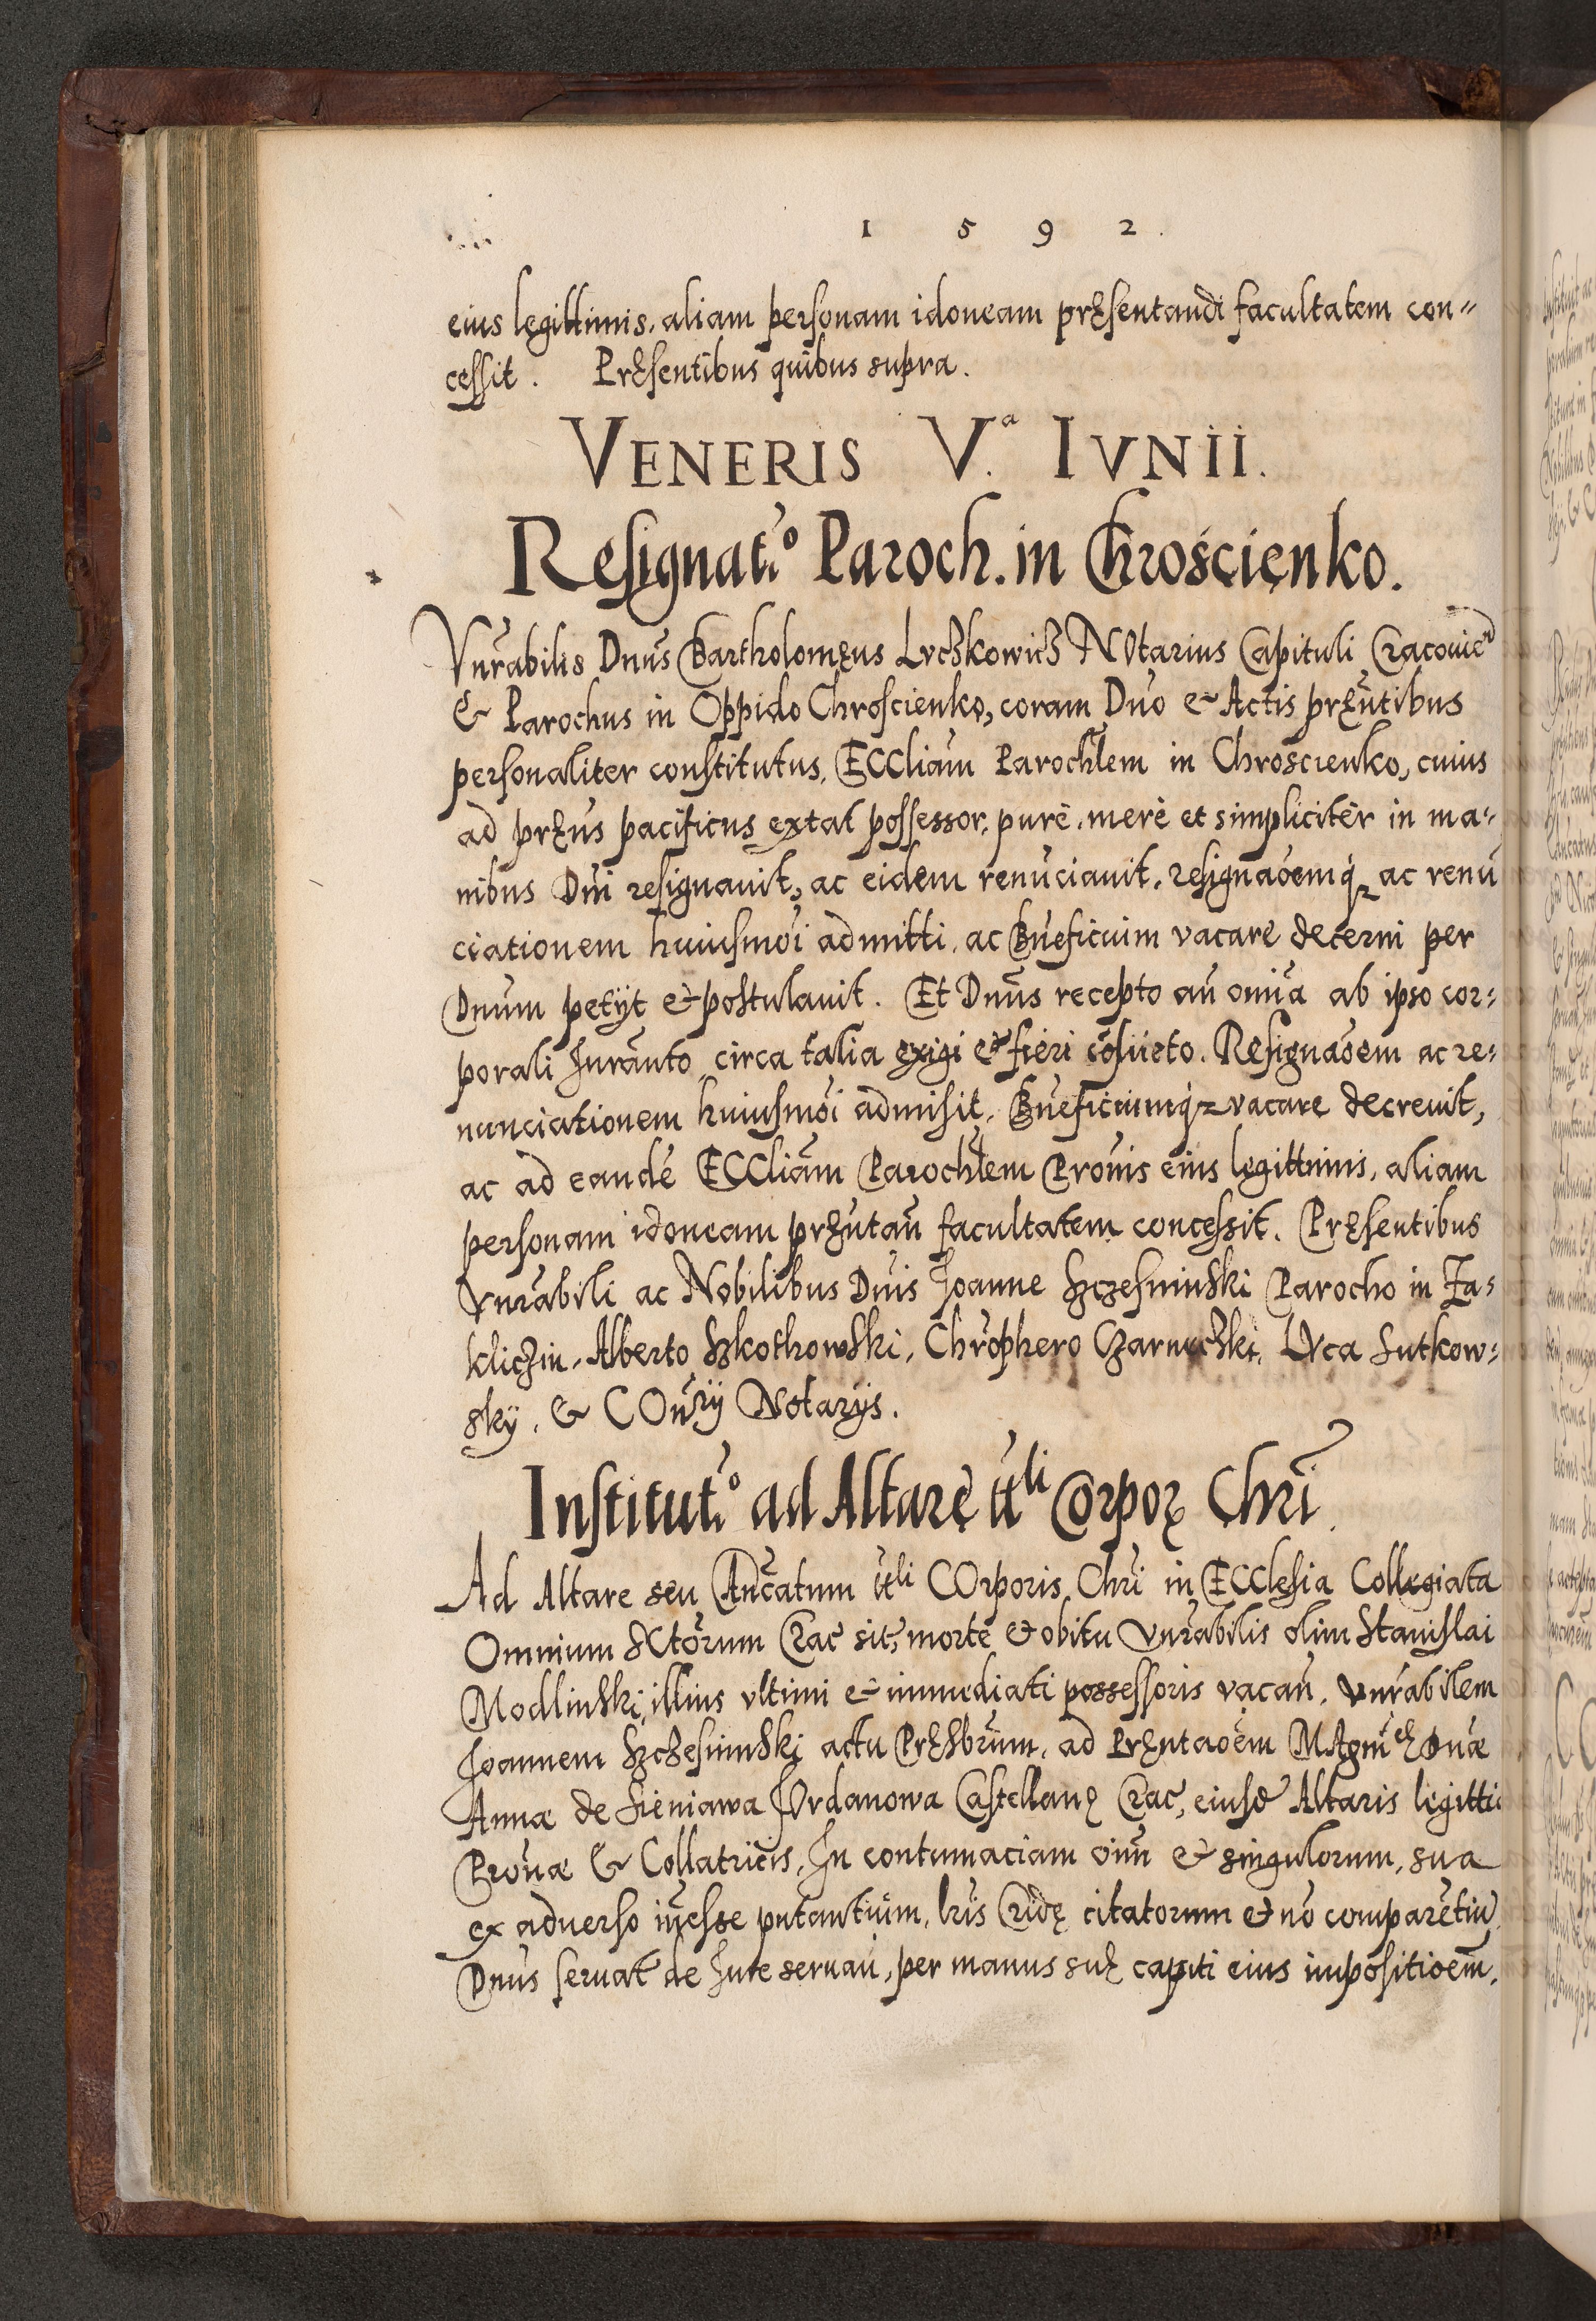 1 5 9 2.
eius legittimis, aliam personam idoneam pręsentandi facultatem con=
cessit. Pręsentibus quibus supra.
VENERIS V.ª IVNII.
Resignat.º Paroch. in Chrościęnko.
Vnrabilis Dnus Bartholomęus Lvczkowicz NOtarius Capituli Cracouien
& Parochus in Oppido Chroscienko, coram Dno & Actis pręntibus
personaliter constitutus, ECCliam Parochlem in Chroscienko, cuius
ad pręns pacificus extat possessor, purè, merè et simplicitèr in ma=
nibus Dni resignauit, ac eidem renuciauit, resignaoemq; ac renu
ciationem huiusmoi admitti, ac Bneficium vacare decerni per
Dnum petÿt & postulauit. Et Dnus recepto an omia ab ipso cor=
porali Iuranto circa talia exigi & fieri cosueto. Resignaoem ac re=
nunciationem huiusmoi admisit, Bneficiumq; vacare decreuit,
ac ad eandé ECCliam Parochlem Pronis eius legittimis, aliam
personam idoneam pręntan facultatem concessit. Pręsentibus
Vnrabili ac Nobilibus Dnis Joanne Szczesninski Parocho in Za=
kliczin, Alberto Szkothowski, Chrophero Czarneczki, LVca Sutkow=
skÿ, & COnrÿ Notarÿs.
Institut.º ad Altarę ttli Corpor Chri.
Ad Altare seu Ancatum ttli COrporis Chri in ECClesia Collegiata
Omnium SCtorum Crac sit, morte & obitu Vnrabilis olim Stanislai
Modlinski, illius vltimi & immediati possessoris vacan, Vnrabilem
Joannem Szczesninski actu Pręsbrum, ad Pręntaoem MAgnicę Dnæ
Annæ de Sieniawa JOrdanowa Castellanę Crac, eiusd Altaris legitti
Pronæ & Collatricis, In contumaciam oim & singulorum, sua
ex aduerso inesse putantium, lris Cridę citatorum & no comparetiu
Dnus seruat de Iure seruan, per manus suę capiti eius impositioem,